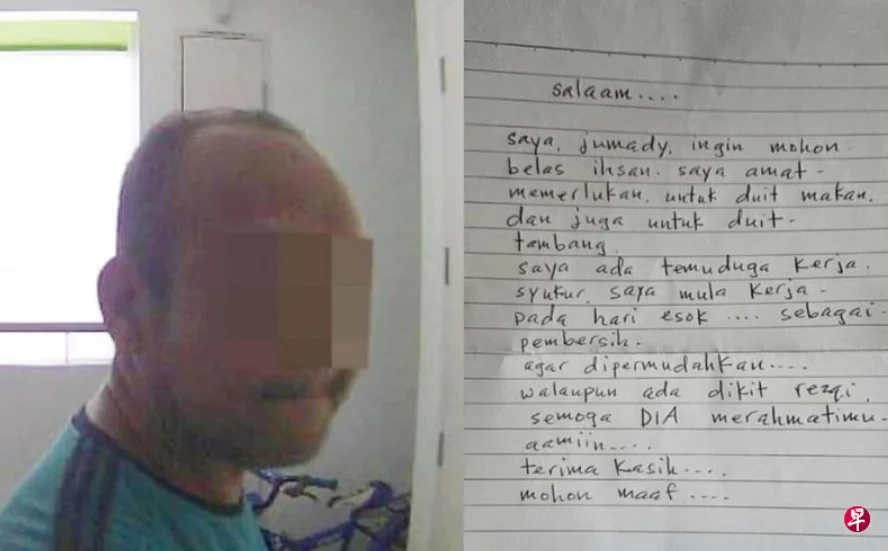 salaam....
saya, jumady, ingin mohon.
belas ihsan. saya amat -
memerlukan, untuk duit makan,
dan juga untuk duit -
tambang.
saya ada temuduga kerja.
syukur, saya mula kerja -
pada hari esok .... sebagai -
pembersih.
agar dipermudahkan....
walaupun ada dikit rezqi,
semoga DIA merahmatimu -
aamiin....
terima kasih....
mohon maaf ....
早